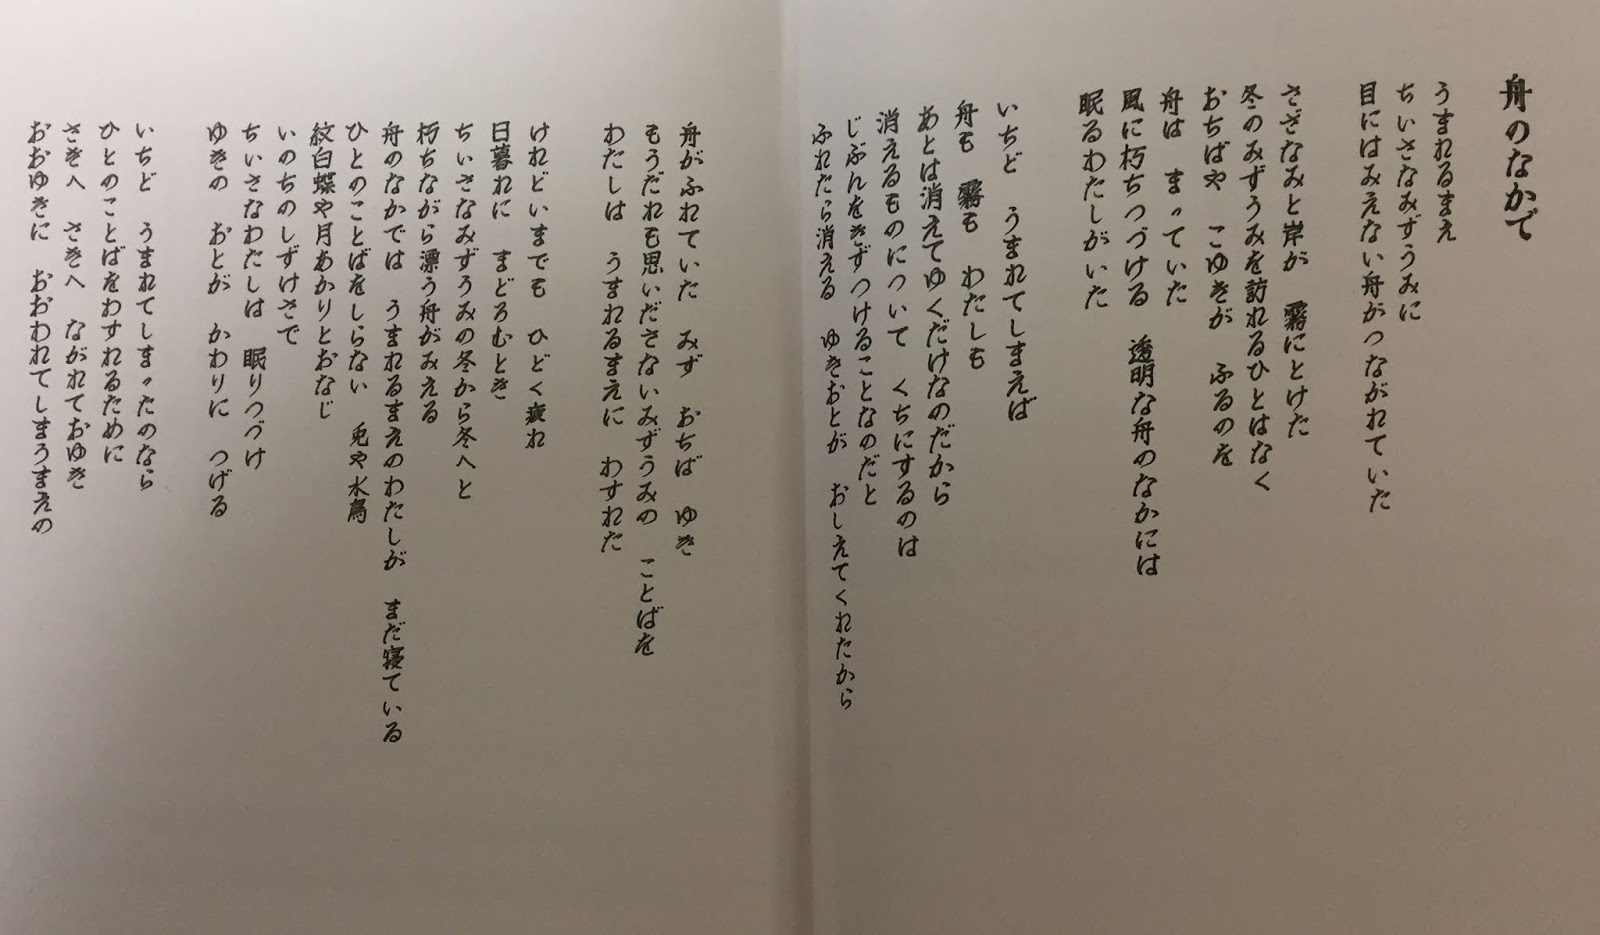 舟のなかで
うまれるまえ
ちいさなみずうみに
目にはみえない舟がつながれていた
さざなみと岸が　霧にとけた
冬のみずうみを訪れるひとはなく
おちばや　こゆきが　ふるのを
舟は　まっていた
風に朽ちつづける　透明な舟のなかには
眠るわたしがいた
いちど　うまれてしまえば
舟も　霧も　わたしも
あとは消えてゆくだけなのだから
消えるものについて　くちにするのは
じぶんをきずつけることなのだと
ふれたら消える　ゆきおとが　おしえてくれたから
舟がふれていた　みず　おちば　ゆき
もうだれも思いださないみずうみの　ことばを
わたしは　うまれるまえに　わすれた
けれどいまでも　ひどく疲れ
日暮れに　まどろむとき
ちいさなみずうみの冬から冬へと
朽ちながら漂う舟がみえる
舟のなかでは　うまれるまえのわたしが　まだ寝ている
ひとのことばをしらない　兎や水鳥
紋白蝶や月あかりとおなじ
いのちのしずけさで
ちいさなわたしは　眠りつづけ
ゆきの　おとが　かわりに　つげる
いちど　うまれてしまったのなら
ひとのことばをわすれるために
さきへ　さきへ　ながれておゆき
おおゆきに　おおわれてしまうまえの